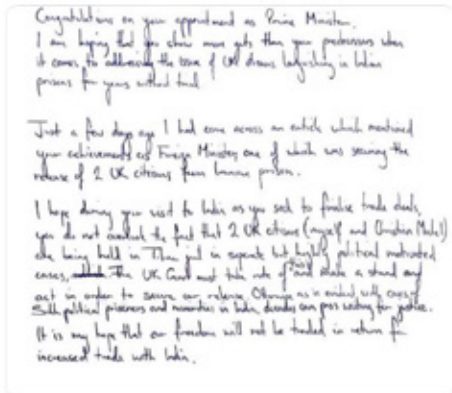 Congratulations on your appointment as Prime Minister.
I am hoping that you show more guts than your predecessors when
it comes to addressing the issue of UK citizens languishing in Indian
prisons for years without trial.
Just a few days ago I had come across an article which mentioned
your achievements as Foreign Minister, one of which was securing the
release of 2 UK citizens from Iranian prison.
I hope during your visit to India as you seek to finalise trade deals,
you do not overlook the fact that 2 UK citizens (myself and Christian Michel)
are being held in Tihar jail in separate but highly political motivated
cases. The UK Govt must take note of this and make a stand
out in order to secure our release. Otherwise as is evident with cases
Sikh political prisoners and minorities in India, decades can pass waiting for justice.
It is my hope that our freedom will not be traded in return for
increased trade with India.